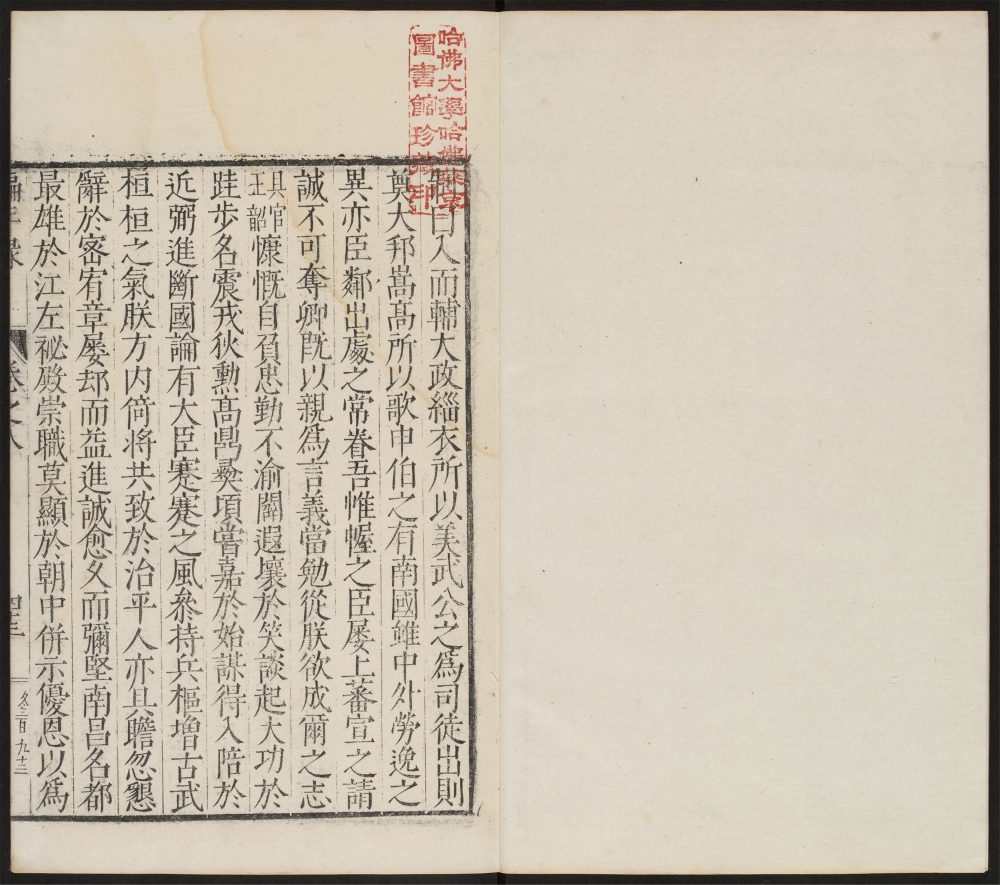 哈佛大學哈佛燕京
圖書館珍藏印
曰入而輔大政緇衣所以美武公之爲司徒出則
奠大邦嵩高所以歌申伯之有南國雖中外勞逸之
異亦臣鄰出處之常眷吾惟幄之臣屡上蕃宣之請
誠不可奪卿旣以親爲言義當勉從朕欲成爾之志
具官
王韶
慷慨自負忠勤不渝闢遐壤於笑談起大功於
跬步名震戎狄勲髙鼎彛項嘗嘉於始謀得入陪於
近弼進斷國論有大臣蹇蹇之風叅持兵樞增古武
桓桓之氣朕方内倚將共致於治平人亦具瞻忽懇
辭於宻宥章屡却而益進誠愈久而彌堅南昌名都
最雄於江左祕殿崇職莫顯於朝中併示優恩以爲
編年錄
卷之八
四十三
冬三百九十三